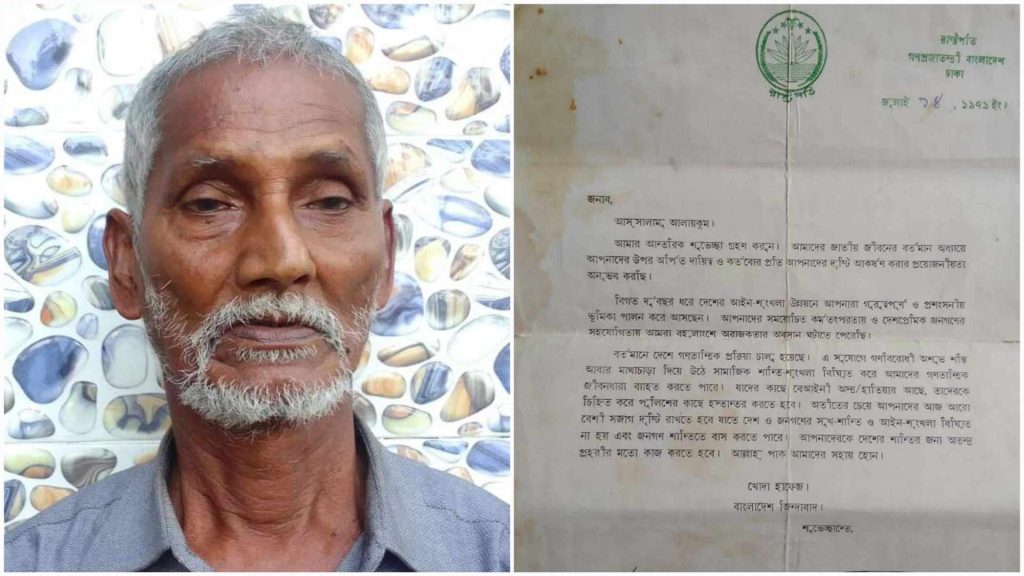 রাষ্ট্রপতি
গণপ্রজাতন্ত্রী বাংলাদেশ
ঢাকা
রাষ্ট্রপতি
জুলাই ১৪, ১৯৭৯ ইং।
জনাব,
আস্‌সালামু আলায়কুম।
আমার আন্তরিক শুভেচ্ছা গ্রহণ করুন। আমাদের জাতীয় জীবনের বর্তমান অধ্যায়ে
আপনাদের উপর অর্পিত দায়িত্ব ও কর্তব্যের প্রতি আপনাদের দৃষ্টি আকর্ষণ করার প্রয়োজনীয়তা
অনুভব করছি।
বিগত দু'বছর ধরে দেশের আইন-শৃংখলা উন্নয়নে আপনারা গুরুত্বপূর্ণ ও প্রশংসনীয়
ভূমিকা পালন করে আসছেন। আপনাদের সময়োচিত কর্মতৎপরতায় ও দেশপ্রেমিক জনগণের
সহযোগিতায় আমরা বহুলাংশে অরাজকতার অবসান ঘটাতে পেরেছি।
বর্তমানে দেশে গণতান্ত্রিক প্রক্রিয়া চালু হয়েছে। এ সুযোগে গণবিরোধী অশুভ শক্তি
আবার মাথাচাড়া দিয়ে উঠে সামাজিক শান্তি-শৃংখলা বিঘ্নিত করে আমাদের গণতান্ত্রিক
জীবনধারা ব্যাহত করতে পারে। যাদের কাছে বেআইনী অস্ত্র/হাতিয়ার আছে, তাদেরকে
চিহ্নিত করে পুলিশের কাছে হস্তান্তর করতে হবে। অতীতের চেয়ে আপনাদের আজ আরো
বেশী সজাগ দৃষ্টি রাখতে হবে যাতে দেশ ও জনগণের সুখ-শান্তি ও আইন-শৃংখলা বিঘ্নিত
না হয় এবং জনগণ শান্তিতে বাস করতে পারে। আপনাদেরকে দেশের শান্তির জন্য অতন্দ্র
প্রহরীর মতো কাজ করতে হবে। আল্লাহ্ পাক আমাদের সহায় হোন।
খোদা হাফেজ।
বাংলাদেশ জিন্দাবাদ।
শুভেচ্ছান্তে,